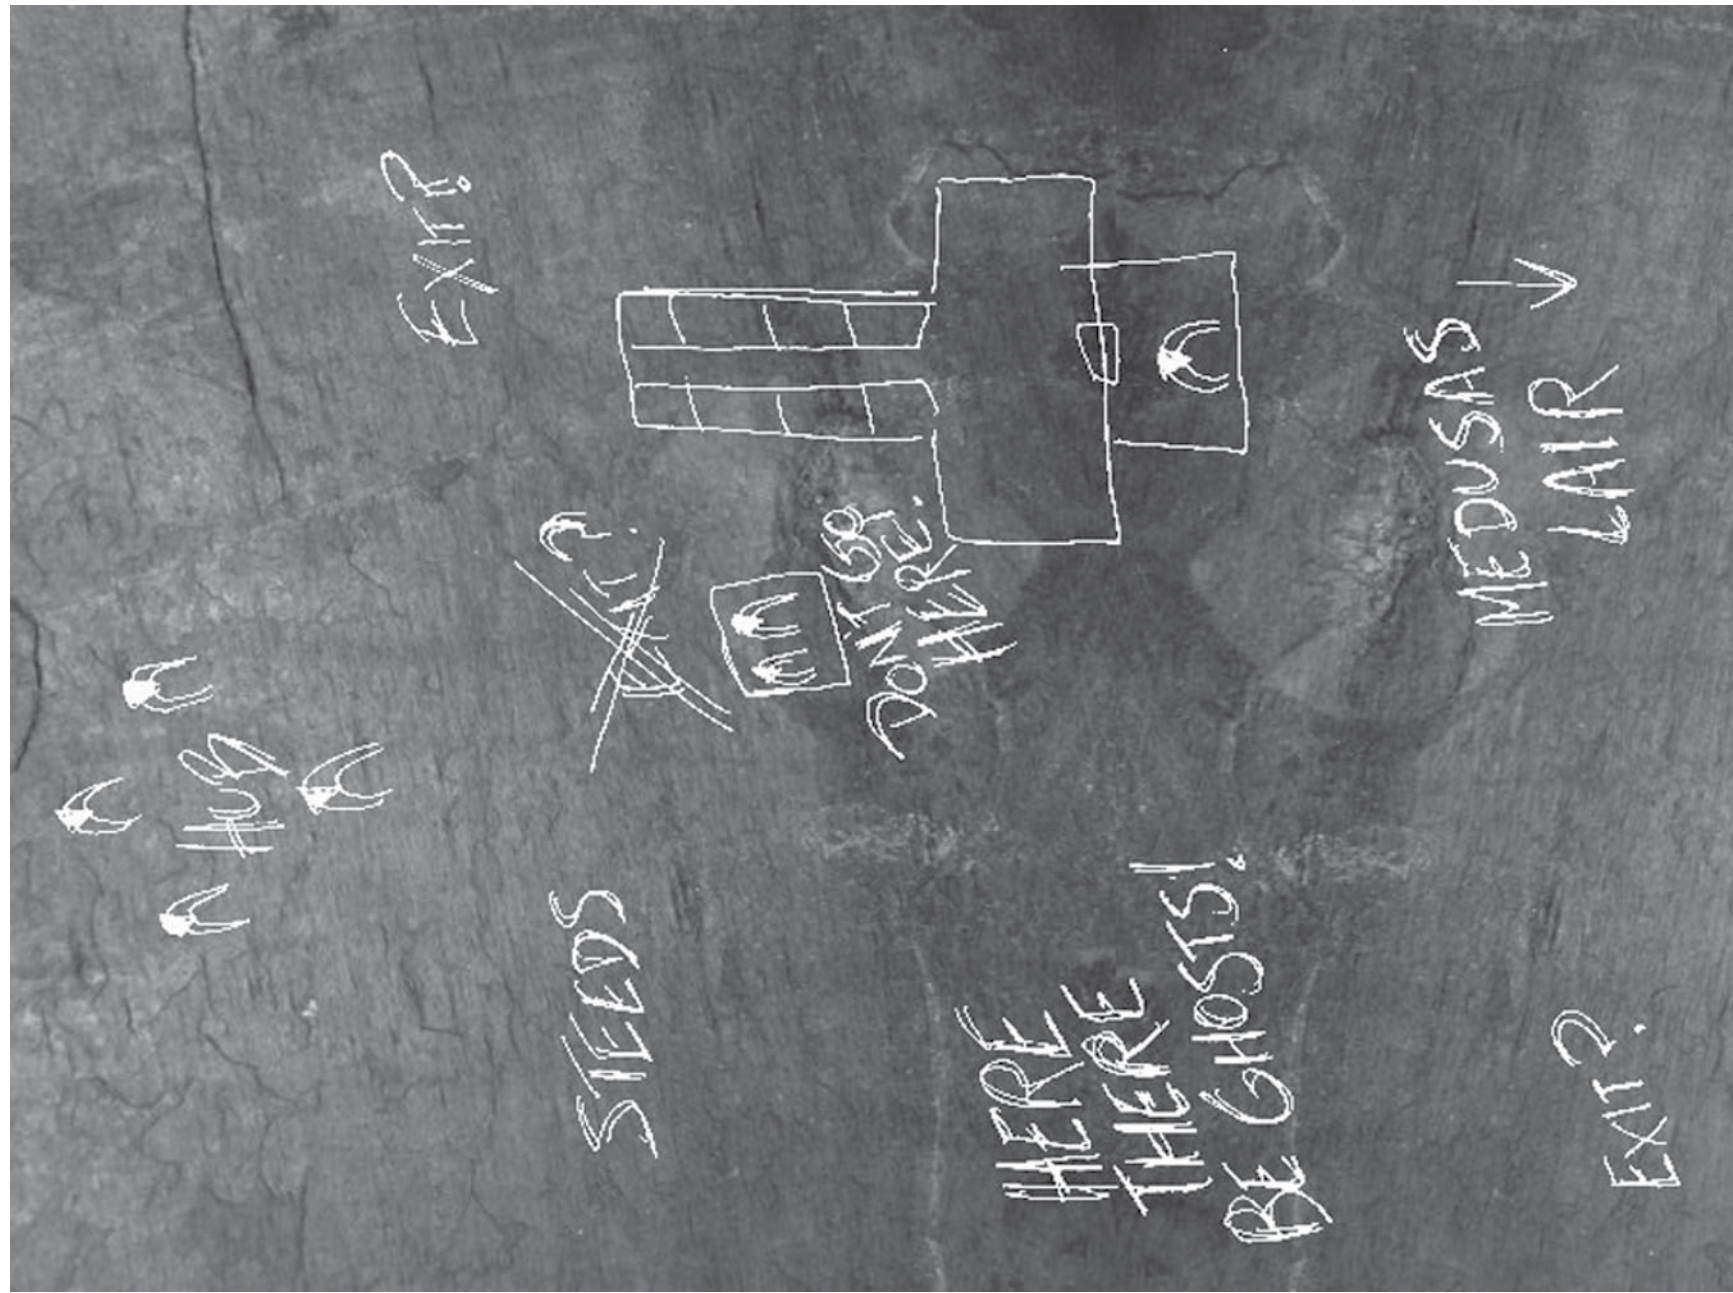 HUB
EXIT?
EXIT?
STEEDS
DONT GO
HERE.
HERE
THERE
BE GHOSTS!
MEDUSAS
LAIR
EXIT?